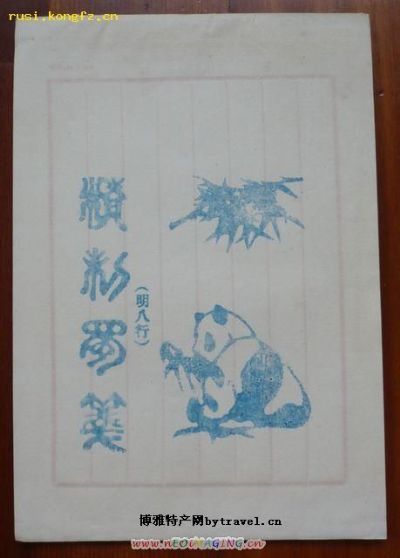 rusi.kongfz.cn
精制蜀笺
(明八行)
博雅特产网bytravel.cn
www.nEOIMAGING.cn